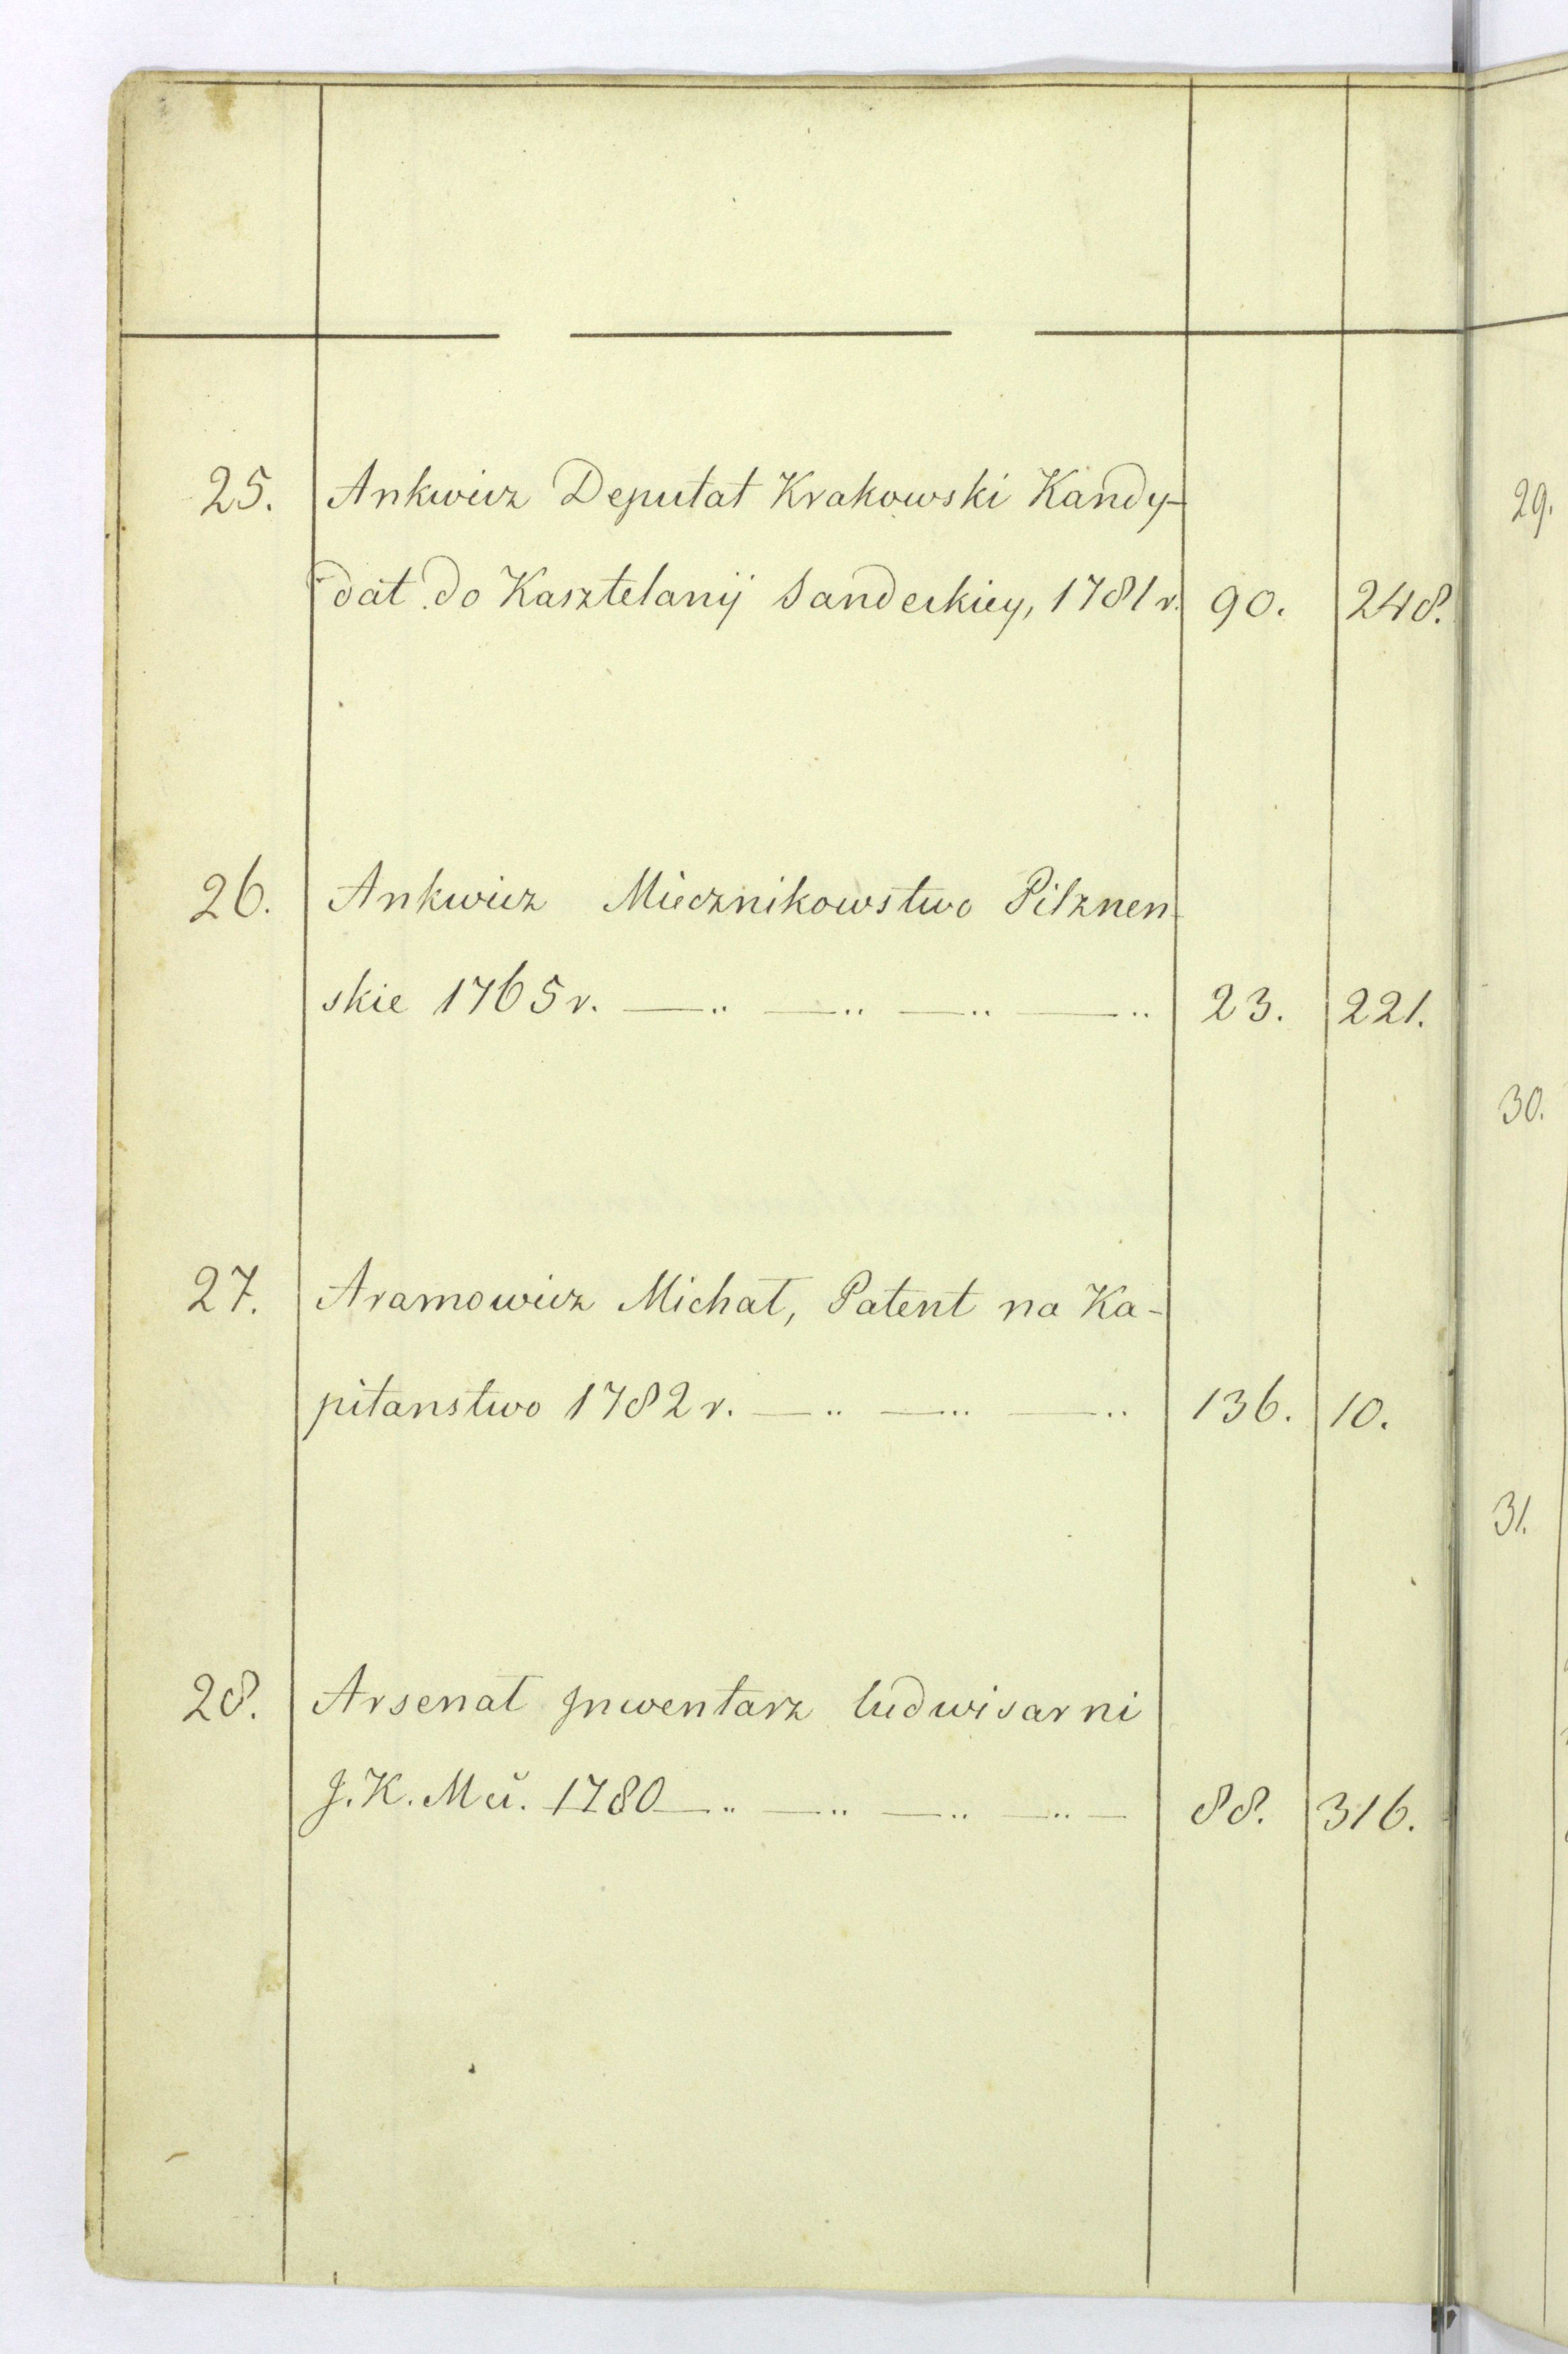 25. Ankwicz Deputat Krakowski Kandy-
dat do Kasztelanij Sandeckiey, 1781 r. 90. 248.
26. Ankwicz Miecznikowstwo Pilznen-
skie 1765 r. —.. —.. —.. —.. 23. 221.
27. Aramowicz Michał, Patent na Ka-
pitanstwo 1782 r. —.. —.. —.. 136. 10.
28. Arsenał Jnwentarz ludwisarni
J. K. Mci. 1780 —.. —.. —.. —.. — 88. 316.
29.
30.
31.